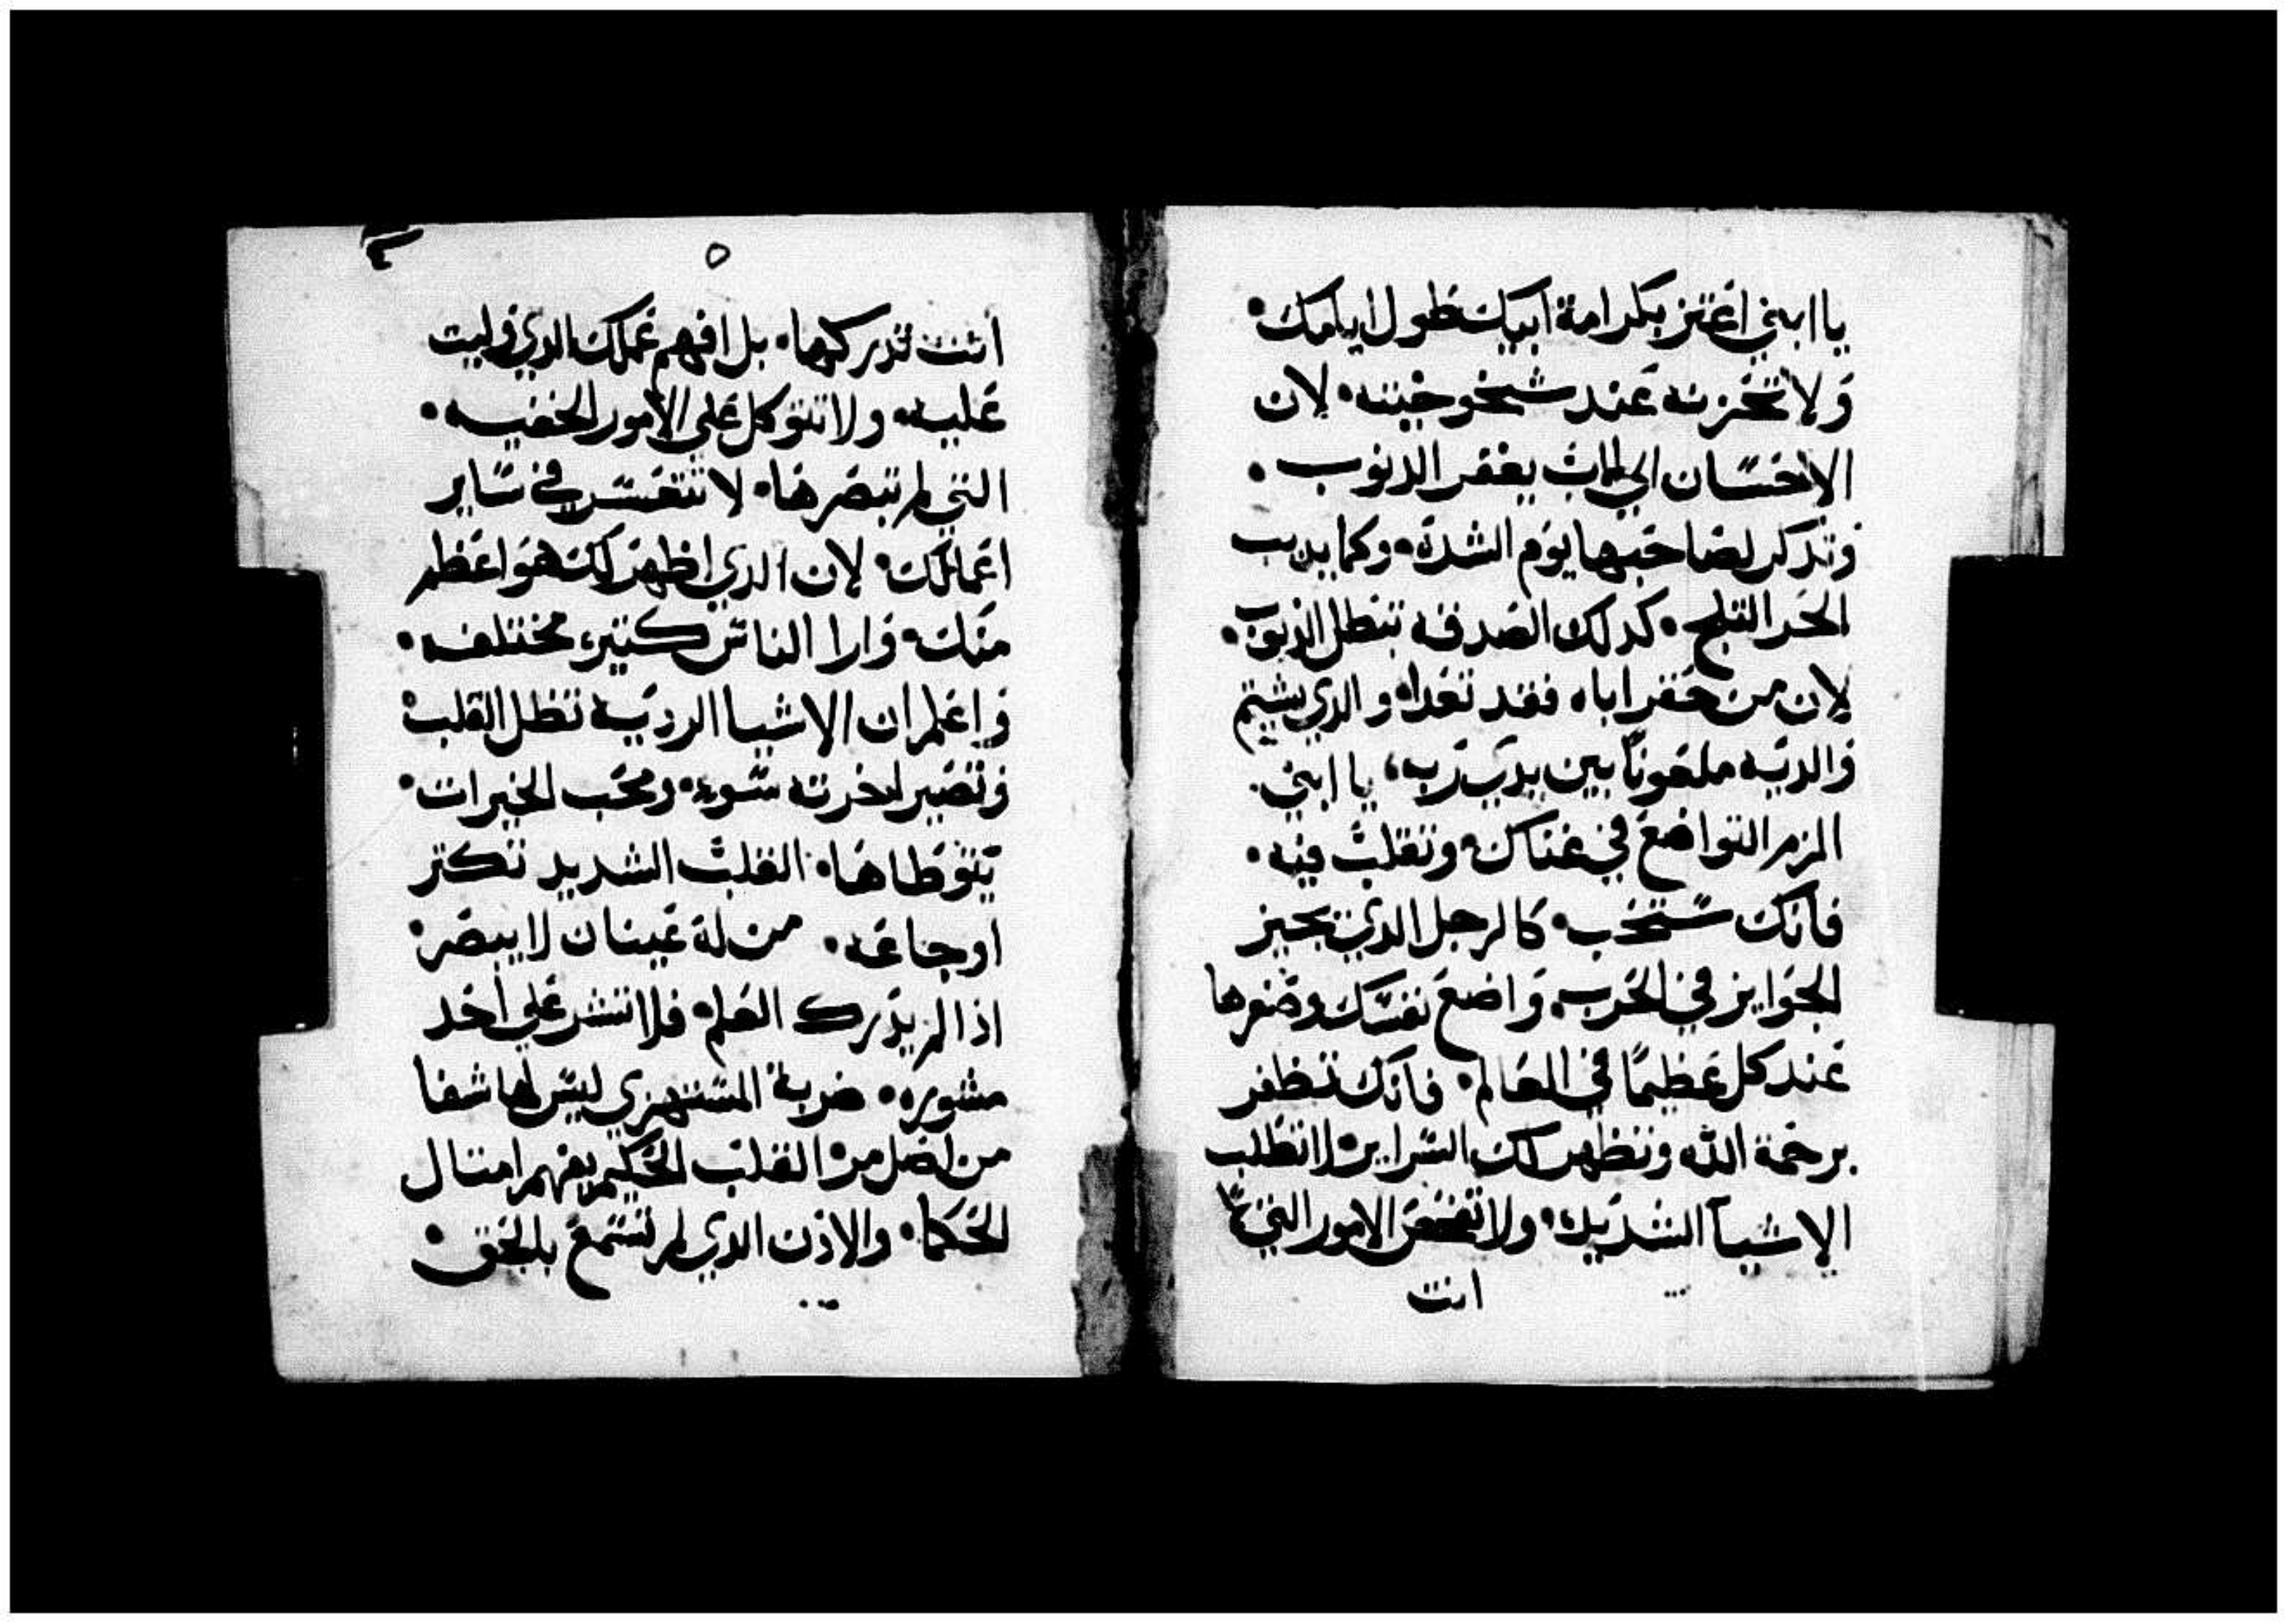 يا ابني اعتز بكرامة ابيك طول ايامك•
ولا تحزنه عند شيخوخيته• لان
الاحسان الي الاب يغفر الدنوب•
وتدكر لصاحبها يوم الشدة• وكما يديب
الحر التلج• كدلك الصدقه تبطل الدنوب•
لان من حقر اباه فقد تعدا• والدي يشتم
والديه ملعونا بين يدي رب، يا ابني•
الزم التواضع في غناك• وتقلب فيه•
فانك ستحب• كالرجل الدي يجيز
الجوايز في الحرب• واضع نفسك وصغرها
عند كل عظيمًا في العالم• فانك تظفر
برحمة الله وتظهر لك السراير• لا تطلب
الاشيآ الشديده• ولا تفحص الامور التي لا
انت
٥
٤
انت تدركها• بل افهم عملك الدي وليت
عليه• ولا تتوكل علي الامور الخفيه•
التي لم تبصرها• لا تتعسر في ساير
اعمالك• لان الدي اظهر لك هو اعظم
منك• وارا الناس كتيره مختلفه•
واعلم ان الاشيا الرديه تظل القلب•
وتصير اخرته سوء• ومحب الخيرات•
يتوطاها• القلب الشديد تكتر
اوجاعه• من له عينان لا يبصر•
اذا لم يدرك العلم• فلا تشر علي احد
مشوره• ضربة المستهزي ليس لها شفا
من القلب الحكيم يفهم امتال
الحكما• والاذن الدي لم تستمع بالحق•